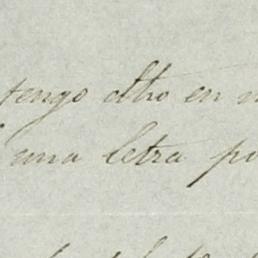 tengo dho en
una letra